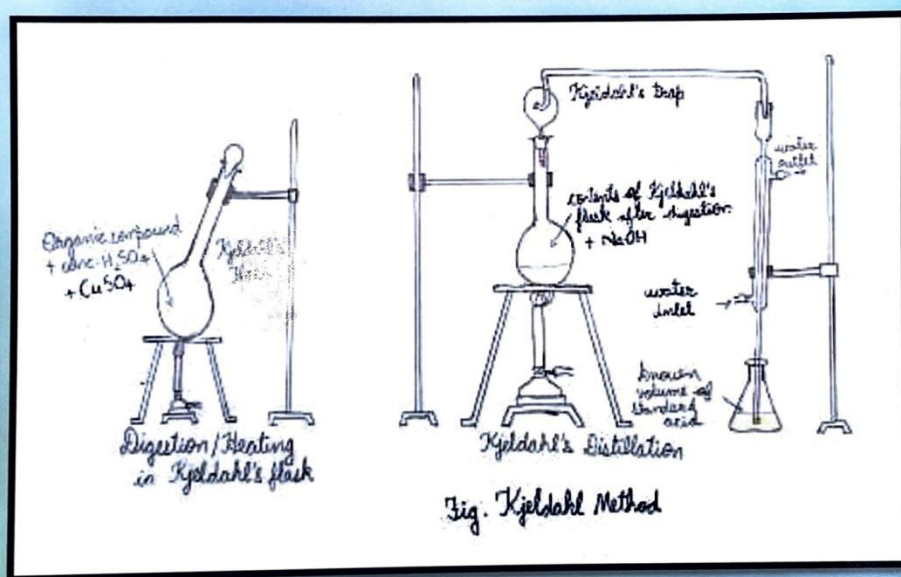 Organic compound
+ conc. H₂SO₄
+ CuSO₄
Kjeldahl's
flask
Digestion/Heating
in Kjeldahl's flask
Kjeldahl's trap
contents of Kjeldahl's
flask after digestion
+ NaOH
water
outlet
water
inlet
known
volume of
standard
acid
Kjeldahl's Distillation
Fig. Kjeldahl Method